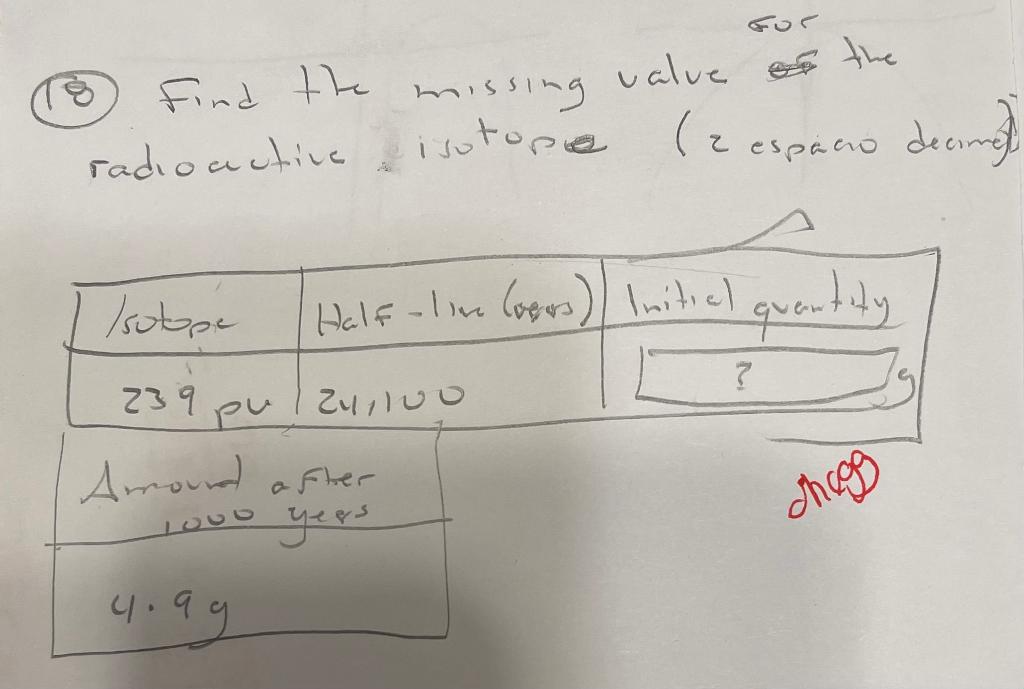 18 Find the missing value for the
radioactive isotope (2 espacio decimal)
Isotope Half-live (years) Initial quantity
239 pu 24,100 ? g
Amound after
1000 years
4.9g
chegg